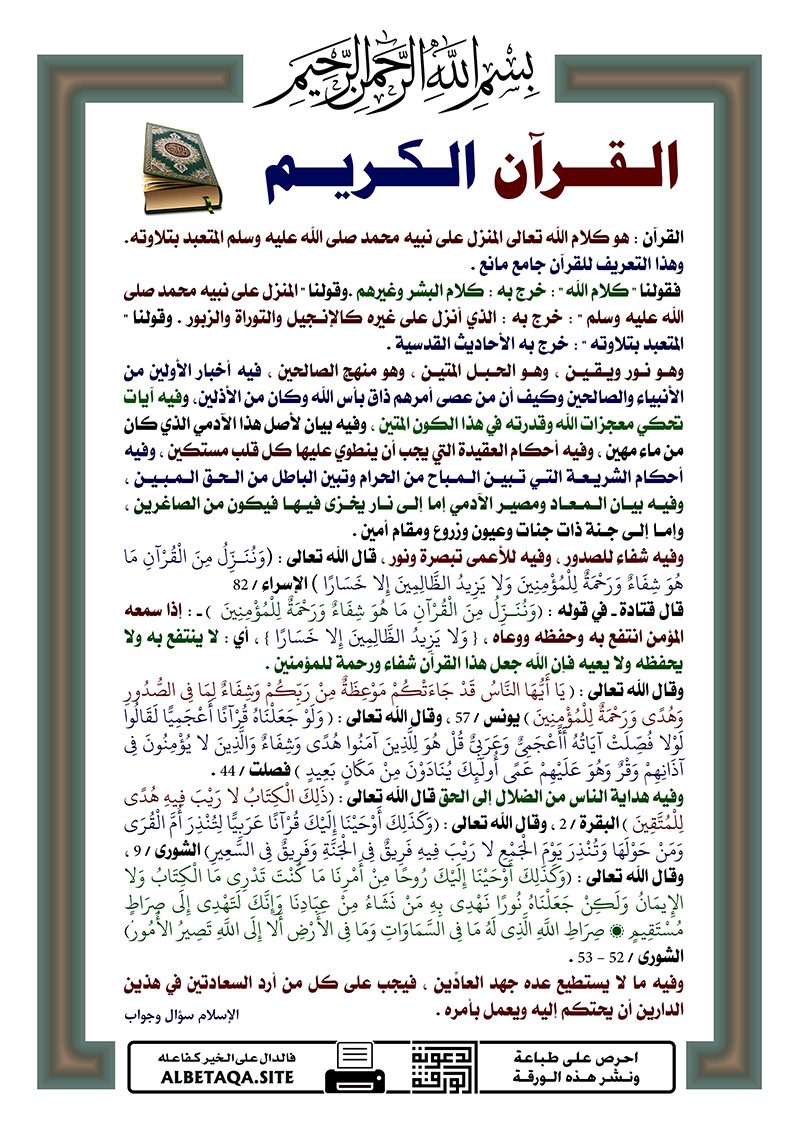 بسم الله الرحمن الرحيم
القرآن الكريم
القرآن : هو كلام الله تعالى المنزل على نبيه محمد صلى الله عليه وسلم المتعبد بتلاوته.
وهذا التعريف للقرآن جامع مانع .
فقولنا " كلام الله " : خرج به : كلام البشر وغيرهم .وقولنا " المنزل على نبيه محمد صلى
الله عليه وسلم " : خرج به : الذي أنزل على غيره كالإنجيل والتوراة والزبور . وقولنا "
المتعبد بتلاوته " : خرج به الأحاديث القدسية .
وهو نور ويقين ، وهو الحبل المتين ، وهو منهج الصالحين ، فيه أخبار الأولين من
الأنبياء والصالحين وكيف أن من عصى أمرهم ذاق بأس الله وكان من الأذلين، وفيه آيات
تحكي معجزات الله وقدرته في هذا الكون المتين ، وفيه بيان لأصل هذا الآدمي الذي كان
من ماء مهين ، وفيه أحكام العقيدة التي يجب أن ينطوي عليها كل قلب مستكين ، وفيه
أحكام الشريعة التي تبين المباح من الحرام وتبين الباطل من الحق المبين ،
وفيه بيان المعاد ومصير الآدمي إما إلى نار يخزى فيها فيكون من الصاغرين ،
وإما إلى جنة ذات جنات وعيون وزروع ومقام أمين .
وفيه شفاء للصدور ، وفيه للأعمى تبصرة ونور ، قال الله تعالى : (وَنُنَزِّلُ مِنَ الْقُرْآنِ مَا
هُوَ شِفَاءٌ وَرَحْمَةٌ لِلْمُؤْمِنِينَ وَلا يَزِيدُ الظَّالِمِينَ إِلا خَسَارًا ) الإسراء / 82
قال قتادة ـ في قوله : (وَنُنَزِّلُ مِنَ الْقُرْآنِ مَا هُوَ شِفَاءٌ وَرَحْمَةٌ لِلْمُؤْمِنِينَ ) ـ : إذا سمعه
المؤمن انتفع به وحفظه ووعاه ، { وَلا يَزِيدُ الظَّالِمِينَ إِلا خَسَارًا } ، أي : لا ينتفع به ولا
يحفظه ولا يعيه فإن الله جعل هذا القرآن شفاء ورحمة للمؤمنين .
وقال الله تعالى : ( يَا أَيُّهَا النَّاسُ قَدْ جَاءَتْكُمْ مَوْعِظَةٌ مِنْ رَبِّكُمْ وَشِفَاءٌ لِمَا فِي الصُّدُورِ
وَهُدًى وَرَحْمَةٌ لِلْمُؤْمِنِينَ ) يونس / 57 ، وقال الله تعالى : ( وَلَوْ جَعَلْنَاهُ قُرْآنًا أَعْجَمِيًّا لَقَالُوا
لَوْلا فُصِّلَتْ آيَاتُهُ أَأَعْجَمِيٌّ وَعَرَبِيٌّ قُلْ هُوَ لِلَّذِينَ آمَنُوا هُدًى وَشِفَاءٌ وَالَّذِينَ لا يُؤْمِنُونَ فِي
آذَانِهِمْ وَقْرٌ وَهُوَ عَلَيْهِمْ عَمًى أُولَئِكَ يُنَادَوْنَ مِنْ مَكَانٍ بَعِيدٍ ) فصلت / 44 .
وفيه هداية الناس من الضلال إلى الحق قال الله تعالى : (ذَلِكَ الْكِتَابُ لا رَيْبَ فِيهِ هُدًى
لِلْمُتَّقِينَ ) البقرة / 2 ، وقال الله تعالى : (وَكَذَلِكَ أَوْحَيْنَا إِلَيْكَ قُرْآنًا عَرَبِيًّا لِتُنْذِرَ أُمَّ الْقُرَى
وَمَنْ حَوْلَهَا وَتُنْذِرَ يَوْمَ الْجَمْعِ لا رَيْبَ فِيهِ فَرِيقٌ فِي الْجَنَّةِ وَفَرِيقٌ فِي السَّعِيرِ) الشورى / 9 ،
وقال الله تعالى : (وَكَذَلِكَ أَوْحَيْنَا إِلَيْكَ رُوحًا مِنْ أَمْرِنَا مَا كُنْتَ تَدْرِي مَا الْكِتَابُ وَلا
الإِيمَانُ وَلَكِنْ جَعَلْنَاهُ نُورًا نَهْدِي بِهِ مَنْ نَشَاءُ مِنْ عِبَادِنَا وَإِنَّكَ لَتَهْدِي إِلَى صِرَاطٍ
مُسْتَقِيمٍ ۞ صِرَاطِ اللَّهِ الَّذِي لَهُ مَا فِي السَّمَاوَاتِ وَمَا فِي الأَرْضِ أَلا إِلَى اللَّهِ تَصِيرُ الأُمُورُ)
الشورى / 52 – 53 .
وفيه ما لا يستطيع عده جهد العادِّين ، فيجب على كل من أرد السعادتين في هذين
الدارين أن يحتكم إليه ويعمل بأمره .
الإسلام سؤال وجواب
احرص على طباعة
ونشر هذه الورقة
الدعوية
الورقة
فالدال على الخير كفاعله
ALBETAQA.SITE